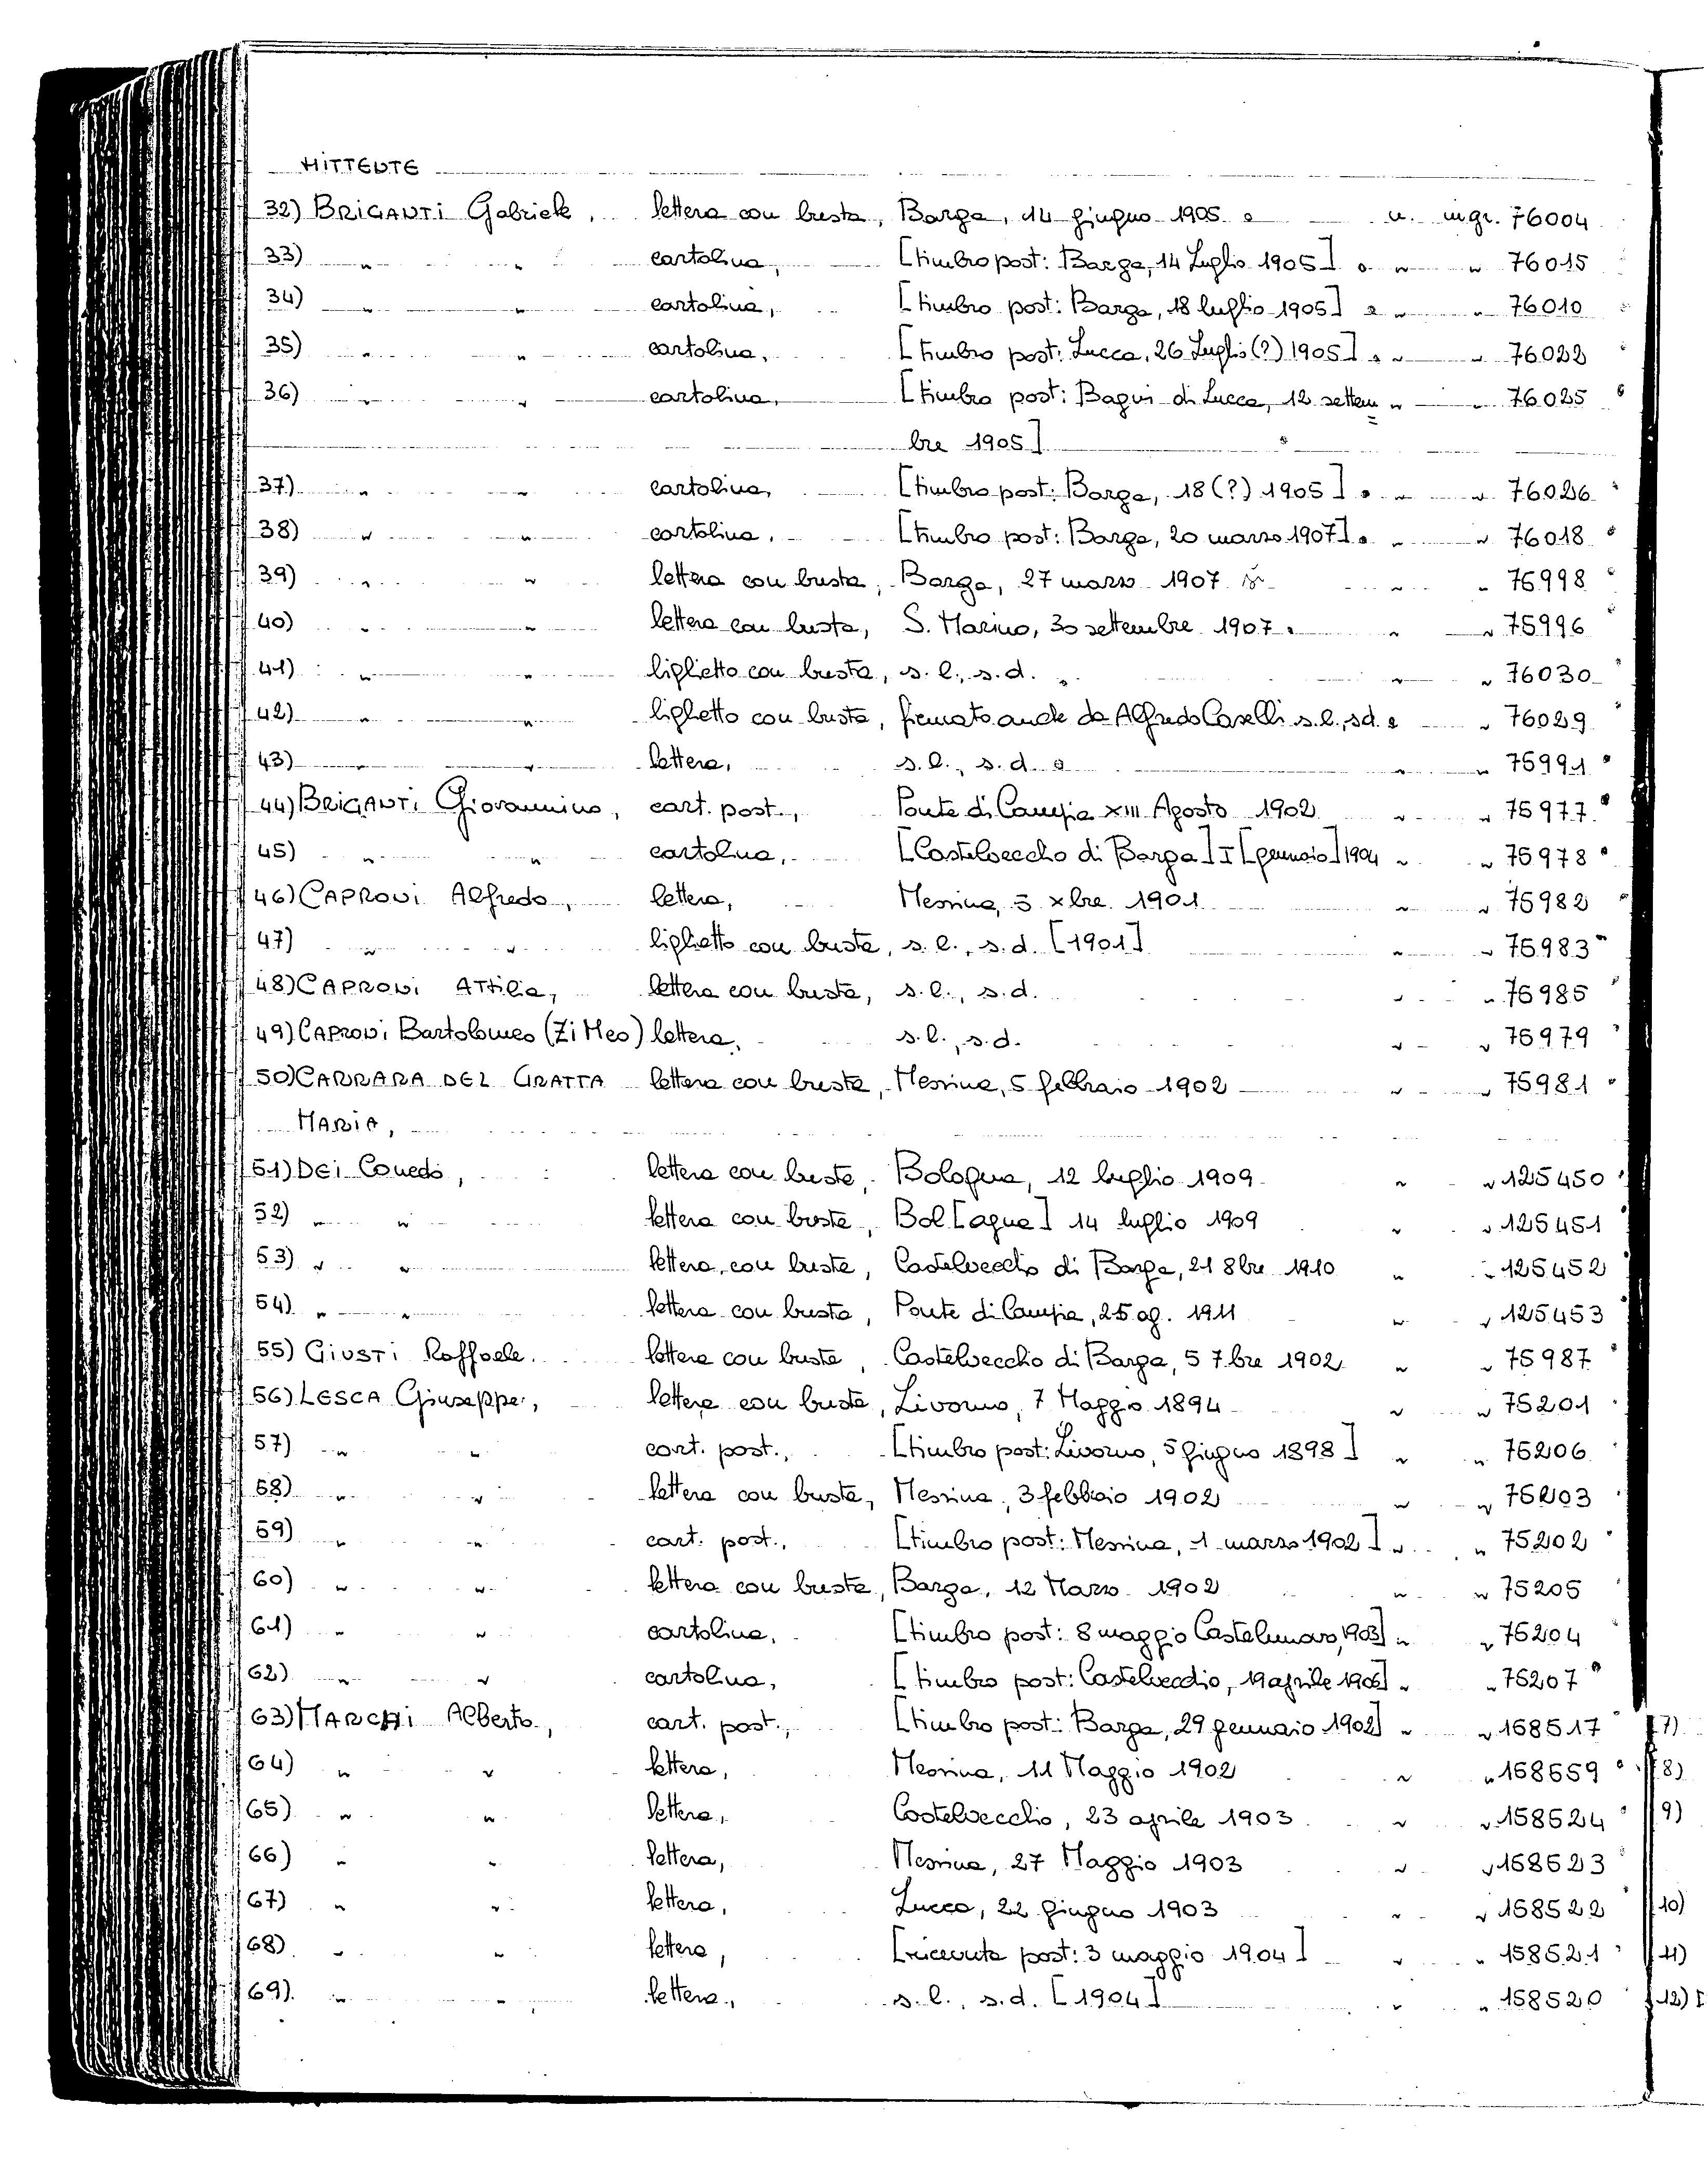 MITTENTE
32) BRIGANTI Gabriele, lettera con busta, Barga, 14 giugno 1905 n. ingr. 76004
33) " " cartolina, [timbro post: Barga, 14 Luglio 1905] " " 76015
34) " " cartolina, [timbro post: Barga, 18 luglio 1905] " " 76010
35) " " cartolina, [timbro post: Lucca, 26 Luglio (?) 1905] " " 76022
36) " " cartolina, [timbro post: Bagni di Lucca, 12 settem " " 76025
bre 1905]
37) " " cartolina, [timbro post: Barga, 18 (?) 1905] " " 76026
38) " " cartolina, [timbro post: Barga, 20 marzo 1907] " " 76018
39) " " lettera con busta, Barga, 27 marzo 1907 " " 75998
40) " " lettera con busta, S. Marino, 30 settembre 1907. " " 75996
41) " " biglietto con busta, s.l., s.d. " " 76030
42) " " biglietto con busta, firmato anche da Alfredo Caselli s.l., s.d. " 76029
43) " " lettera, s.l., s.d. " " 75991
44) BRIGANTI Giovannino, cart. post., Ponte di Campia XIII Agosto 1902 " " 75977
45) " " cartolina, [Castelvecchio di Barga] I [gennaio] 1904 " " 75978
46) CAPRONI Alfredo, lettera, Messina, 5 xbre 1901 " " 75982
47) " " biglietto con busta, s.l., s.d. [1901] " " 75983
48) CAPRONI Attilia, lettera con busta, s.l., s.d. " " 75985
49) CAPRONI Bartolomeo (Zi Meo) lettera, s.l., s.d. " " 75979
50) CARRARA DEL GRATTA lettera con busta, Messina, 5 febbraio 1902 " " 75981
MARIA,
51) DEI Conedo, lettera con busta, Bologna, 12 luglio 1909 " " 125450
52) " " lettera con busta, Bol[ogna] 14 luglio 1909 " " 125451
53) " " lettera con busta, Castelvecchio di Barga, 21 8bre 1910 " " 125452
54) " " lettera con busta, Ponte di Campia, 25 ag. 1911 " " 125453
55) GIUSTI Raffaele. lettera con busta, Castelvecchio di Barga, 5 7bre 1902 " " 75987
56) LESCA Giuseppe, lettera con busta, Livorno, 7 Maggio 1894 " " 75201
57) " " cart. post., [timbro post: Livorno, 5 giugno 1898] " " 75206
58) " " lettera con busta, Messina, 3 febbraio 1902 " " 75203
59) " " cart. post., [timbro post: Messina, 1 marzo 1902] " " 75202
60) " " lettera con busta, Barga, 12 Marzo 1902 " " 75205
61) " " cartolina, [timbro post: 8 maggio Castelnuovo, 1903] " " 75204
62) " " cartolina, [timbro post: Castelvecchio, 19 aprile 1906] " " 75207
63) MARCHI Alberto, cart. post., [timbro post: Barga, 29 gennaio 1902] " " 158517
64) " " lettera, Messina, 11 Maggio 1902 " " 158559
65) " " lettera, Castelvecchio, 23 aprile 1903 " " 158524
66) " " lettera, Messina, 27 Maggio 1903 " " 158523
67) " " lettera, Lucca, 22 giugno 1903 " " 158522
68) " " lettera, [ricevuta post: 3 maggio 1904] " " 158521
69) " " lettera, s.l., s.d. [1904] " " 158520
7)
8)
9)
10)
11)
12) [